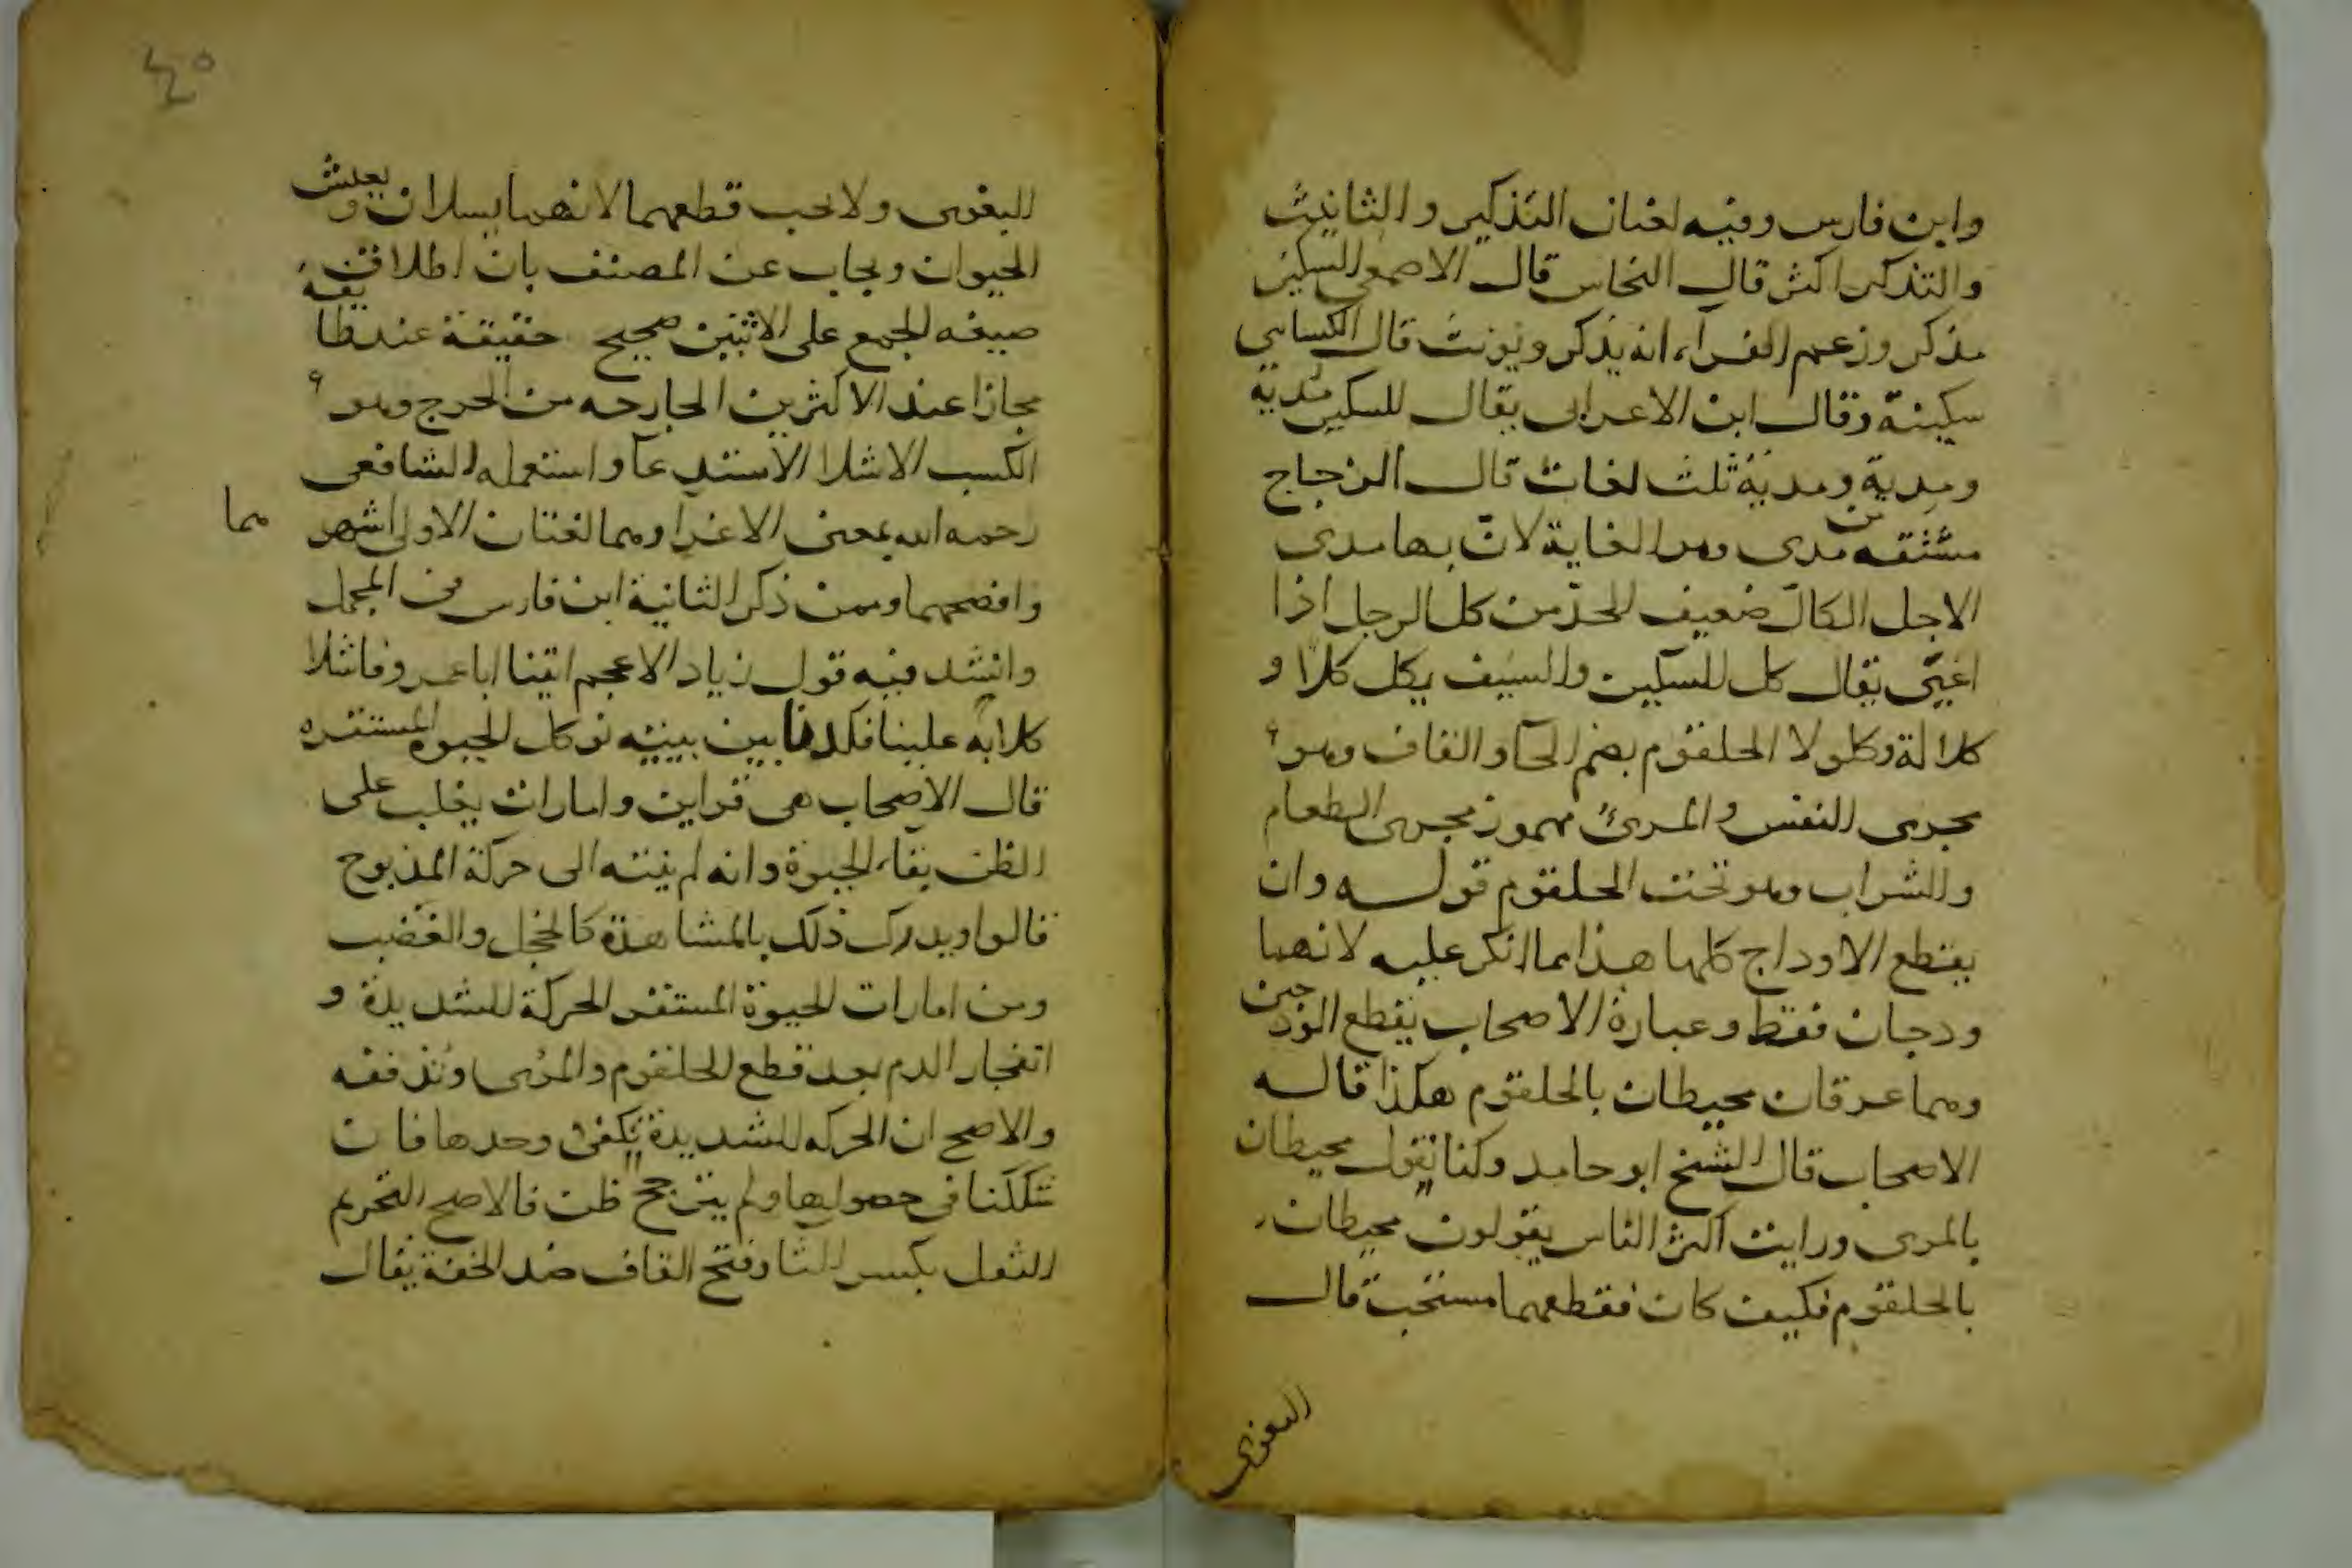 وابن فارس وفيه لغتان التذكير والتانيث
والتذكير اكثر قال النحاس قال الاصمعي السكين
مذكر وزعم الفرآء انه يذكر ويونث قال الكسايي
سكينة وقال ابن الاعرابى يقال للسكين مُدية
ومِدية ومَدية ثلث لغات قال الزجاج
مشتقه من مدى وهو الغاية لان بها مدى
الاجل الكالّ ضعيف الحدّ من كل الرجل اذا
اعيى يقال كل السكين والسيف يكل كلاّ و
كلالة وكلولا الحلقوم بضم الحآ والقاف وهو
مجرى النفس والمرئ مهموز مجرى الطعام
والشراب وهو تحت الحلقوم قوله وان
يقطع الاوداج كلها هذا مما انكر عليه لانهما
ودجان فقط وعبارة الاصحاب يقطع الودجين
وهما عرقان محيطان بالحلقوم هكذا قاله
الاصحاب قال الشيخ ابو حامد وكنا نقول محيطان
بالمرى ورايت اكثر الناس يقولون محيطان
بالحلقوم فكيف كان فقطعهما مستحب قال
البغوى
٤٥
البغوى ولا يجب قطعهما لانهما يسلان ويعيش
الحيوان ويجاب عن المصنف بان اطلاق
صيغه الجمع على الاثنين صحيح حقيقة عند طايفة
مجازا عند الاكثرين الجارحه من الجرح وهو
الكسب الاشلا الاستدعآ واستعمله الشافعى
رحمه الله بمعنى الاغرا وهما لغتان الاولى اشهر
هما
وافصحهما وممن ذكر الثانية ابن فارس فى المجمل
وانشد فيه قول زياد الاعجم اتينا ابا عمرو فاشلا
كلابه علينا فكدنا بين بيتيه نوكل الحيوة المستقره
قال الاصحاب هى قراين وامارات يغلب على
الظن بقآء الحيوة وانه لم ينته الى حركة المذبوح
قالوا ويدرك ذلك بالمشاهدة كالخجل والغضب
ومن امارات الحيوة المستقر الحركة الشديدة و
انفجار الدم بعد قطع الحلقوم والمرى وتدفقه
والاصح ان الحركه الشديدة تكفى وحدها فان
شككنا فى حصولها ولم يترجح ظن فالاصح التحريم
الثقل بكسر الثا وفتح القاف ضد الخفة يقال